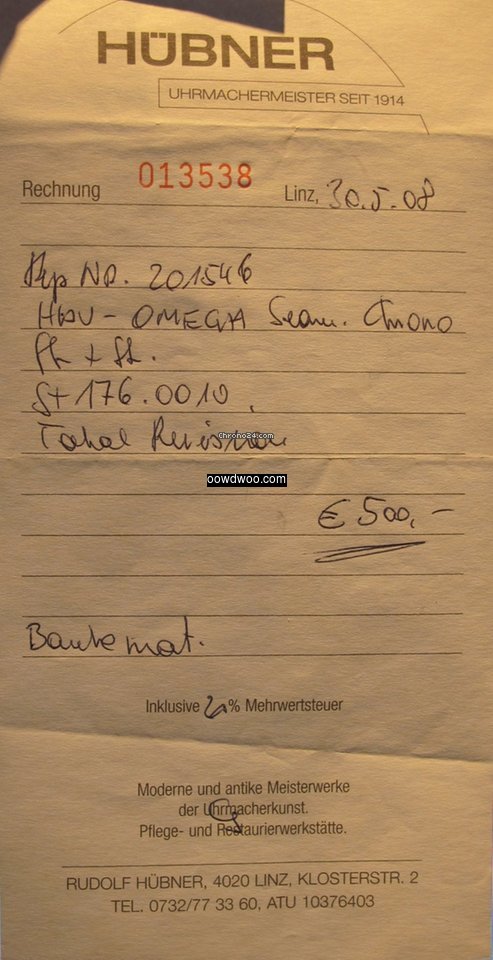 HÜBNER
UHRMACHERMEISTER SEIT 1914
Rechnung 013538 Linz, 30.5.08
Rep NO. 201546
HAU - OMEGA Seam. Chrono
St + St.
St 176.0010.
Total Revision
Chrono24.com
oowdwoo.com
€ 500,-
mat.
Inklusive 20% Mehrwertsteuer
Moderne und antike Meisterwerke
der Uhrmacherkunst.
Pflege- und Restaurierwerkstätte.
RUDOLF HÜBNER, 4020 LINZ, KLOSTERSTR. 2
TEL. 0732/77 33 60, ATU 10376403